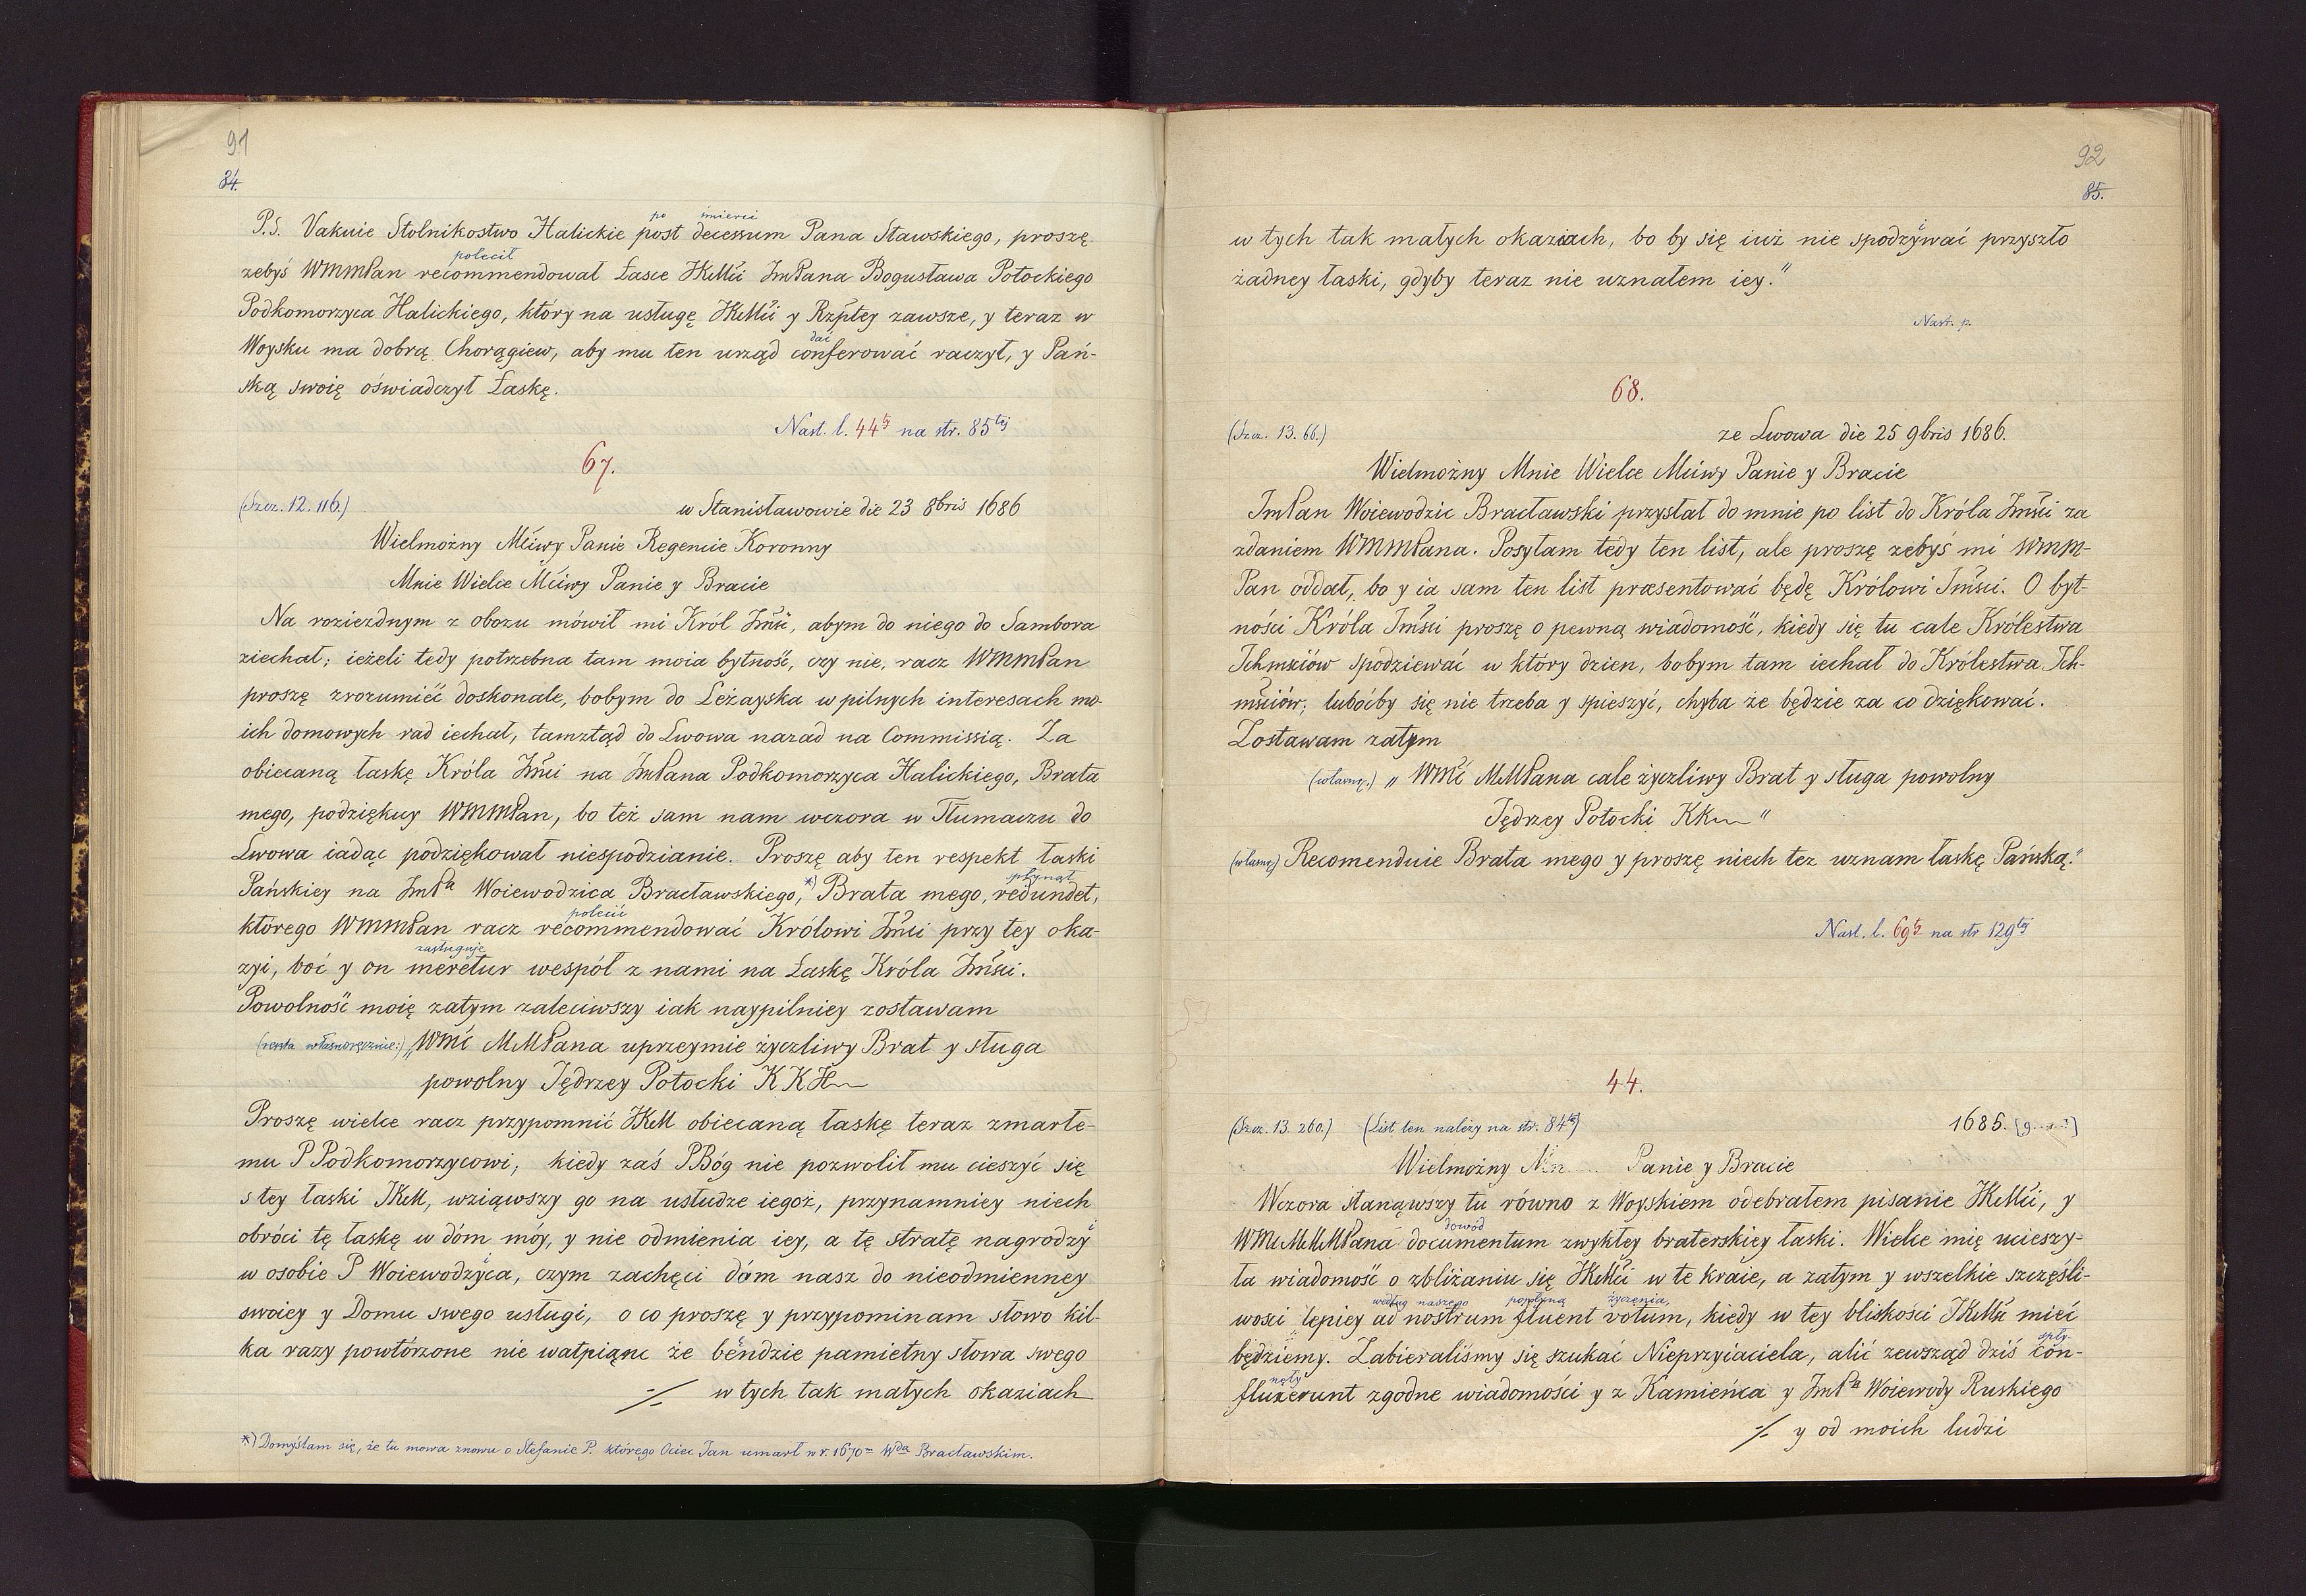 91
84.
po śmierci
P.S. Vakuie Stolnikostwo Halickie post decessum Pana Stawskiego, proszę
polecił
zebyś WMMPan recommendował Łasce JKMći JmPana Bogusława Potockiego
Podkomorzyca Halickiego, który na usługę JKMći y Rzptey zawsze, y teraz w
dać
Woysku ma dobrą Chorągiew, aby mu ten urząd conferować raczył, y Pań-
ską swoię oświadczył Łaskę.
Nast. l. 44ty na str. 85tej
67.
(Szcz. 12. 116.) w Stanisławowie die 23 8bris 1686
Wielmożny Mćiwy Panie Regencie Koronny
Mnie Wielce Mćiwy Panie y Bracie
Na roziezdnym z obozu mówił mi Król Jmći, abym do niego do Sambora
ziechał; ieżeli tedy potrzebna tam moia bytność, czy nie, racz WMMPan
proszę zrozumieć doskonale, bobym do Leżayska w pilnych interesach mo-
ich domowych rad iechał, tamztąd do Lwowa nazad na Commissią. Za
obiecaną łaskę Króla Jmći na JmPana Podkomorzyca Halickiego, Brata
mego, podziękuy WMMPan, bo też sam nam wczora w Tłumaczu do
Lwowa iadąc podziękował niespodzianie. Proszę aby ten respekt łaski
płynął
Pańskiey na JmPa Woiewodzica Bracławskiego,*) Brata mego, redundet,
polecić
którego WMMPan racz recommendować Królowi Jmći przy tey oka-
zasługuje
zyi, boć y on meretur wespół z nami na Łaskę Króla Jmści.
Powolność moię zatym zaleciwszy iak naypilniey zostawam
(reszta własnoręcznie:) „WMć MMPana uprzeymie życzliwy Brat y sługa
powolny Jędrzey Potocki KKH
Proszę wielce racz przypomnić JKM obiecaną łaskę teraz zmarłe-
mu P Podkomorzycowi; kiedy zaś PBóg nie pozwolił mu cieszyć się
s tey łaski JKM, wziąwszy go na usłudze iegoż, przynamniey niech
i
obróci tę łaskę w dóm móy, y nie odmienia iey, a tę stratę nagrodzy
i
w osobie P Woiewodzyca, czym zachęci dóm nasz do nieodmienney
swoiey y Domu swego usługi, o co proszę y przypominam słowo kil-
ka razy powtórzone nie wątpiąnc że bendzie pamiętny słowa swego
w tych tak małych okaziach
*) Domyślam się, że tu mowa znowu o Stefanie P. którego Ociec Jan umarł w r. 1670m Wdą Bracławskim.
92
85.
i
w tych tak małych okaziach, bo by się iuż nie spodzywać przyszło
żadney łaski, gdyby teraz nie uznałem iey.”
Nast. p.
68.
(Szcz. 13. 66.) ze Lwowa die 25 9bris 1686.
Wielmożny Mnie Wielce Mćiwy Panie y Bracie
JmPan Woiewodzic Bracławski przysłał do mnie po list do Króla Jmści za
zdaniem WMMPana. Posyłam tedy ten list, ale proszę zebyś mi WMM-
Pan oddał, bo y ia sam ten list præsentować będę Królowi Jmści. O byt-
ności Króla Jmści proszę o pewną wiadomość, kiedy się tu cale Królestwa
Ichmściów spodziewać w który dzien, bobym tam iechał do Królestwa Ich-
mściów, lubóćby się nie trzeba y spieszyć, chyba że będzie za co dziękować.
Zostawam zatym
(własnoę.) „WMć MMPana cale życzliwy Brat y sługa powolny
Jędrzey Potocki KK”
(własnę) Recomenduie Brata mego y proszę niech tez uznam łaskę Pańską.”
Nast. l. 69ty na str 129tej
44.
(Szcz. 13. 260.) (List ten należy na str. 84tą) 1685.
Wielmożny Panie y Bracie
Wczora stanąwszy tu równo z Woyskiem odebrałem pisanie JKMći, y
dowód
WMMMPana documentum zwykłey braterskiey łaski. Wielce mię ucieszy-
ła wiadomość o zbliżaniu się JKMći w te kraie, a zatym y wszelkie szczęśli-
według naszego popłyną życzenia,
wości lepiey ad nostrum fluent votum, kiedy w tey bliskości JKMći mieć
spły-
będziemy. Zabieraliśmy się szukać Nieprzyiaciela, alić zewsząd dziś con-
nęły
fluxerunt zgodne wiadomości y z Kamieńca y JmPa Woiewody Ruskiego
y od moich ludzi